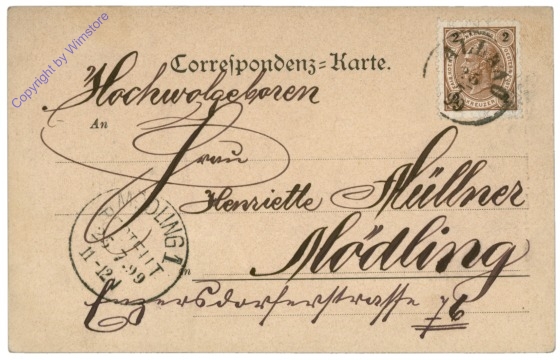 Copyright by Wimstore
Correspondenz-Karte.
Hochwolgeboren
An
Frau
Henriette Müllner
in
Mödling
Enzersdorferstrasse 76
2 2
KREUZER
MÖDLING 1
BESTELLT
25.7.99
11-12